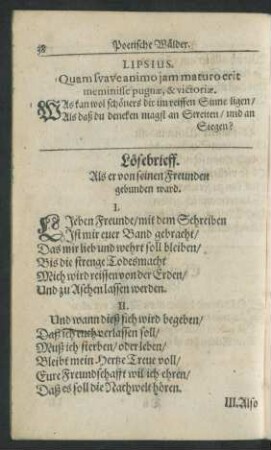 38 Poetische Wälder.
LIPSIUS.
Quam svave animo jam maturo erit
meminisse pugnæ, & victoriæ.
WAs kan wol schöners dir im reiffen Sinne ligen/
Als daß du dencken magst an Streiten/ und an
Siegen?
Lösebrieff.
Als er von seinen Freunden
gebunden ward.
I.
Ieben Freunde/ mit dem Schreiben
Ist mir euer Band gebracht/
Das mir lieb und wehrt soll bleiben/
Bis die strenge Todesmacht
Mich wird reissen von der Erden/
Und zu Aschen lassen werden.
II.
Und wann diß sich wird begeben/
Daß ich euch verlassen soll/
Muß ich sterben/ oder leben/
Bleibt mein Hertze Treue voll/
Eure Freundschafft wil ich ehren/
Daß es soll die Nachwelt hören.
III. Also